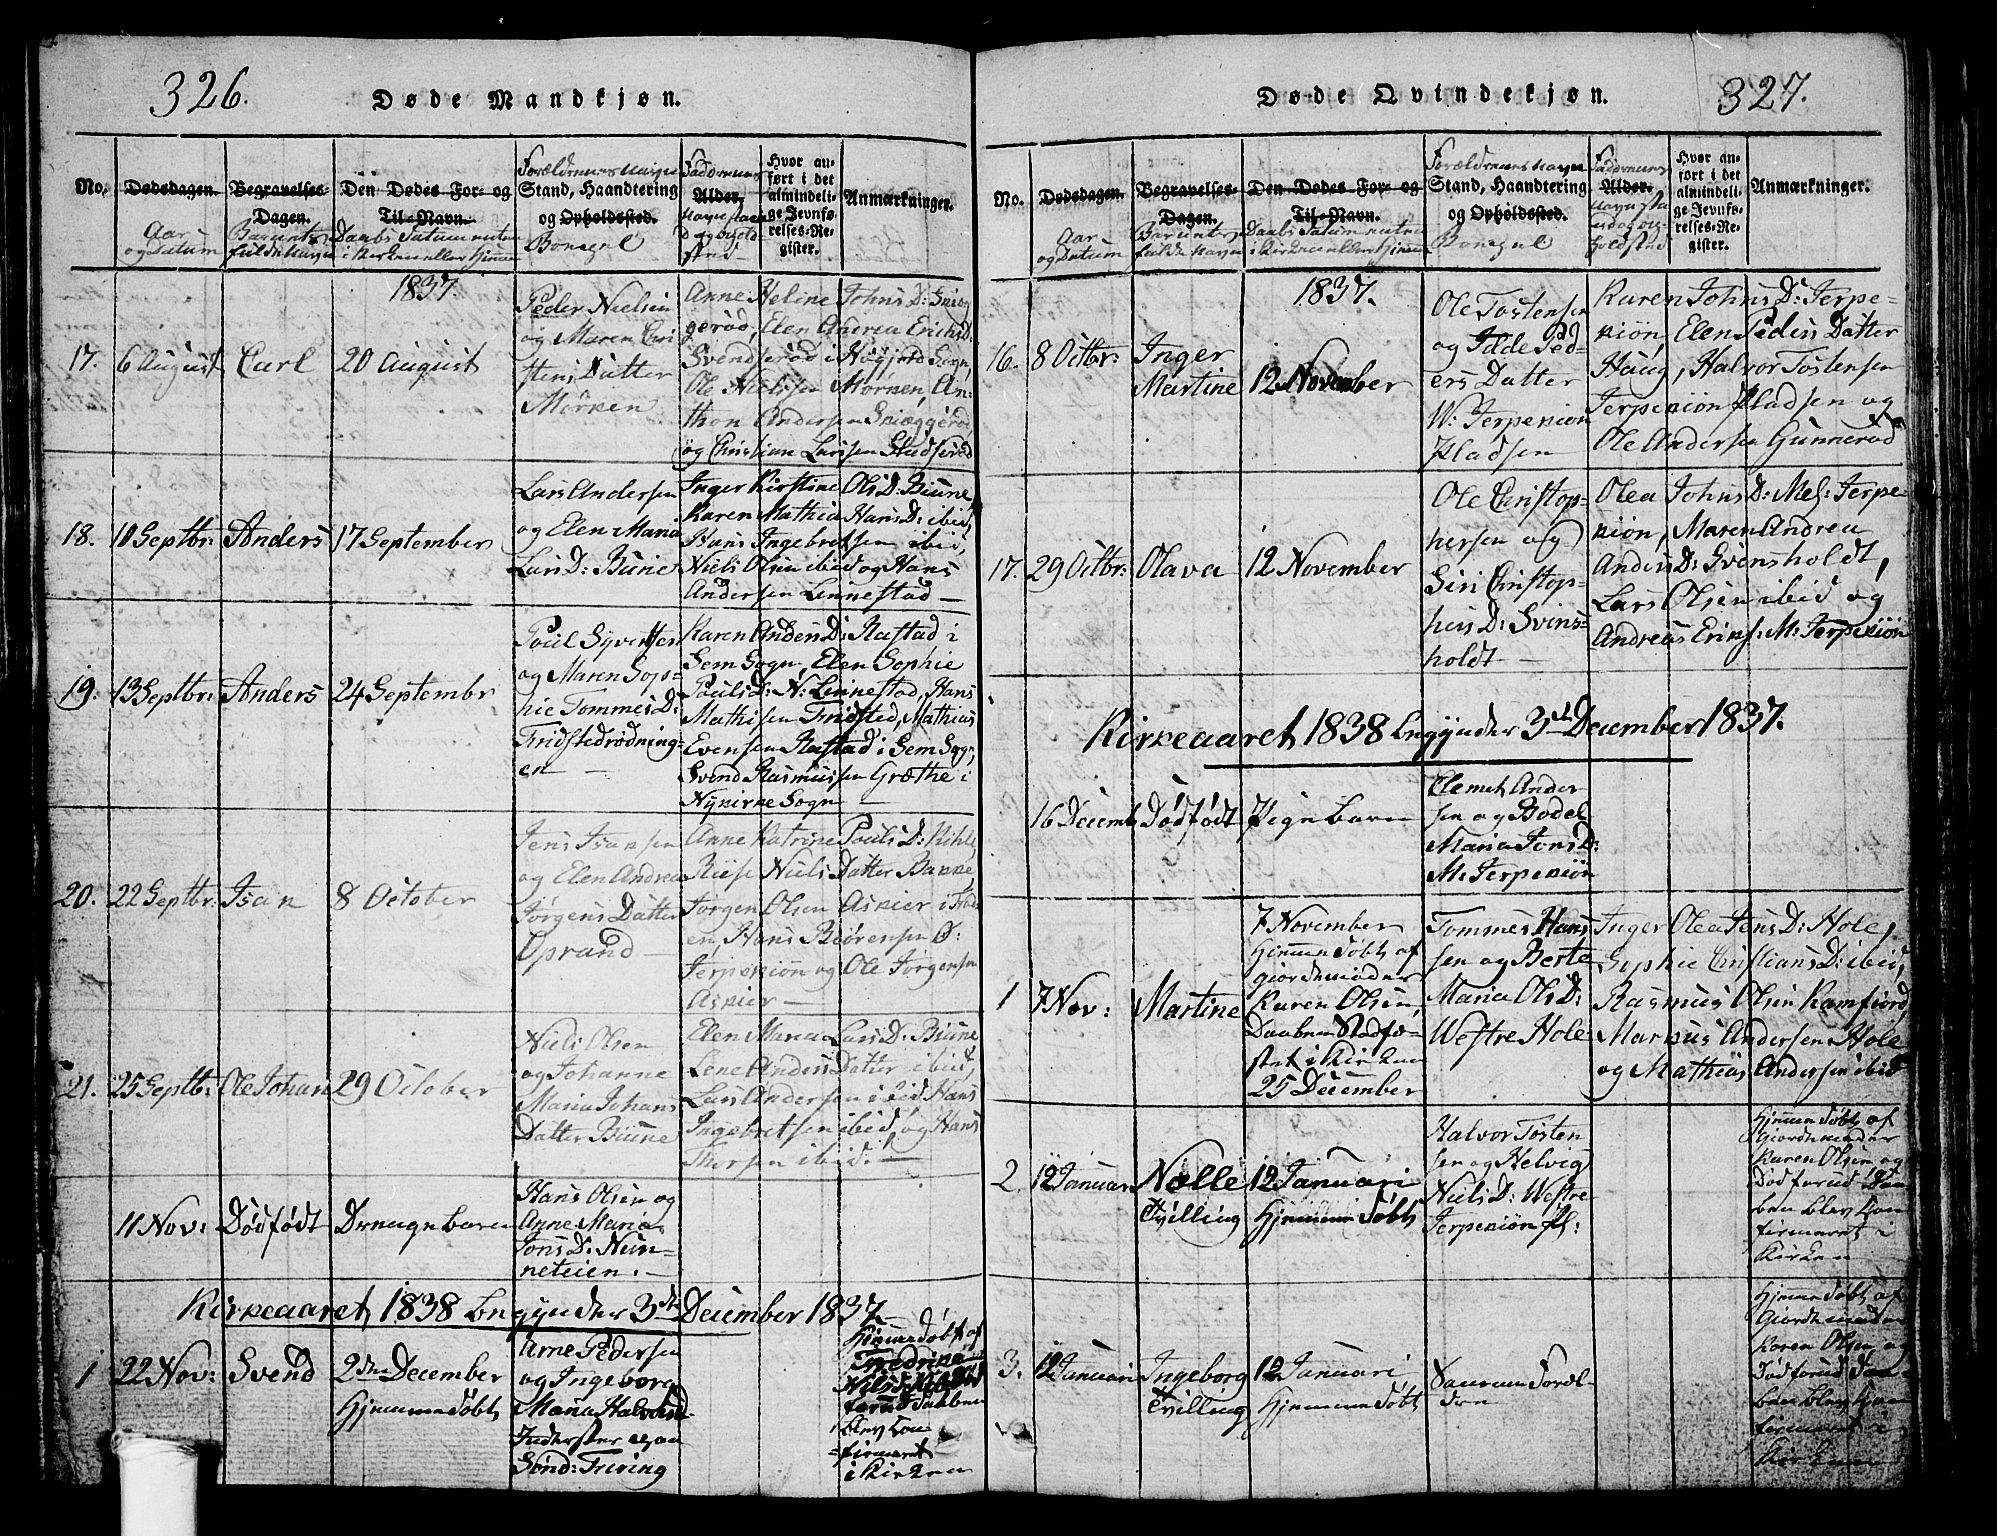 326.
Døde Mandkjøn.
No.
Dødsdagen.
Aar
og Datum
Begravelses-
Dagen.
Barnets
fulde Navn
Den Dødes For- og
Til-Navn.
Daabs Datum enten
i Kirken eller Hjemme
Forældrenes Navne
Stand, Haandtering
og Opholdssted.
Bopæl
Faddernes
Alder.
Hvor an-
ført i det
almindeli-
ge Jevnfø-
relses-Re-
gister.
Anmærkninger.
1837.
17.
6 August
Carl
20 August
Peder Nielsen
og Maren Chri
stens Datter
Mörken
Anne Heline Johns D:
geröd, Elen Andrea Erichs D:
Svendseröd i Högjord Sogn,
Ole Nielsen Mörken, An-
thon Andersen Sneggeröd
og Christian Larsen
18.
10 Septbr:
Anders
17 September
Lars Andersen
og Elen Maria
Lars D: Biune
Inger Kirstine Ols D: Biune
Karen Mathia Hans D: ibid,
Hans Ingebretsen ibid,
Niels Olsen ibid og Hans
Andersen Linnestad —
19.
13 Septbr:
Anders
24 Septembr
Poul Syvertsen
og Maren Sop-
hie Tommes D:
Fridstedrödning-
en —
Karen Anders D: Rastad i
Sem Sogn, Elen Sophie
Pouls D: N: Linnestad, Hans
Mathisen Fridsted, Mathias
Evensen Rastad i Sem Sogn,
Svend Rasmussen Græthe i
Nykirke Sogn —
20.
22 Septbr:
Isak
8 October
Jens Isaksen
og Elen Andrea
Jörgens Datter
Oprand —
Anne Katrine Pouls D: Kihle
Riise Niels Datter Bakke,
Jörgen Olsen Askier i
en, Hans Biörensen Ö:
Jerpekiön og Ole Jörgensen
Askier —
21.
25 Septbr:
Ole Johan
29 October
Niels Olsen
og Johanne
Maria Johans
Datter Biune
Elen Maria Lars D: Biune
Lene Anders Datter ibid,
Lars Andersen ibid Hans
Ingebretsen ibid, og Hans
Thorsen ibid. —
11 Nov:
Dödfödt
Drenge barn
Hans Olsen og
Anne Maria
Jons D: Nun-
neteien. —
Kirkeaaret 1838 begynder 3de December 1837.
1
22 Nov:
Svend
2den December
Hjemmedöbt
Arne Pedersen
og Ingeborg
Maria Halvors D
Sönd: Freving
Hjemmedöbt af
Fredrine
Daaben
blev kon
firmeret
i Kirken
327.
Døde Qvindekjøn.
No.
Dødsdagen.
Aar
og Datum
Begravelses-
Dagen.
Barnets
fulde Navn
Den Dødes For- og
Til-Navn.
Daabs Datum enten
i Kirken eller Hjemme
Forældrenes Navne
Stand, Haandtering
og Opholdssted.
Bopæl
Faddernes
Alder.
Hvor an-
ført i det
almindeli-
ge Jevnfø-
relses-Re-
gister.
Anmærkninger.
1837.
16.
8 Octbr:
Inger
Martine
12 November
Ole Tostensen
og Idde Ped-
ers Datter
W: Jerpekiön
Pladsen
Karen Johns D: Jerpe-
kiön, Elen Peders Datter
Haug, Halvor Tostensen
Jerpekiön Pladsen og
Ole Andersen Gunneröd
17.
29 Octbr:
Olava
12 November
Ole Christop-
hersen og
Siri Christop-
hers D: Svins-
holdt —
Olea Johns D: Mel: Jerpe-
kiön, Maren Andrea
Anders D: Svensholdt,
Lars Olsen ibid og
Andreas Eriks: M: Jerpekiön
Kirkeaaret 1838 begynder 3de December 1837.
16 Decemb
Dödfödt
Pige barn
Clemet Ander
sen og Bodel
Maria Jons D:
M: Jerpekiön
1
7 Nov:
Martine
7 November
Hjemmedöbt af
Giordemoder
Karen Olsen,
Daaben Stadfæ-
stet i Kirken
25 December
Tommes Hans
sen og Berte
Maria Ols D:
Westre Hole
Inger Olea Jens D: Hole,
Sophie Christians D: ibid,
Rasmus Olsen Ramfiord,
Markus Andersen Hole
og Mathias Andersen ibid
2.
12 Januari
Nælle
Tvilling
12 Januari
Hjemmedöbt
Halvor Tosten
sen og Helvig
Niels D: Westre
Jerpekiön Pl:
Hjemmedöbt af
Giordemoder
Karen Olsen og
Död forud Daa
ben blev kon
firmeret i
Kirken
3.
12 Januari
Ingeborg
Tvilling
12 Januari
Hjemmedöbt
Samme Foræl-
dre
Hjemmedöbt af
Giordemoder
Karen Olsen og
Död forud Daa-
ben blev kon
firmeret i
Kirken